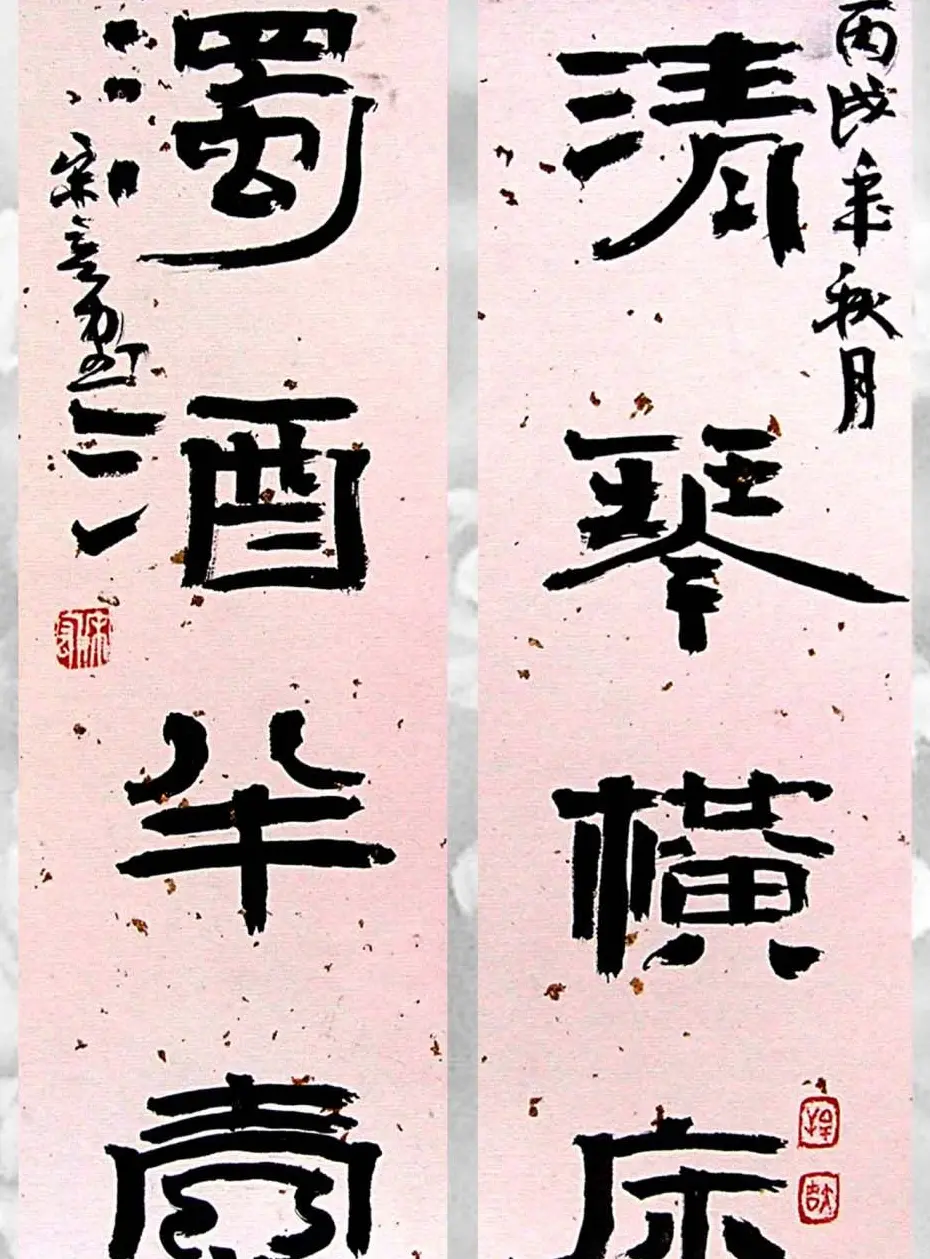 丙戌年秋月
清琴橫床
濁酒半壺